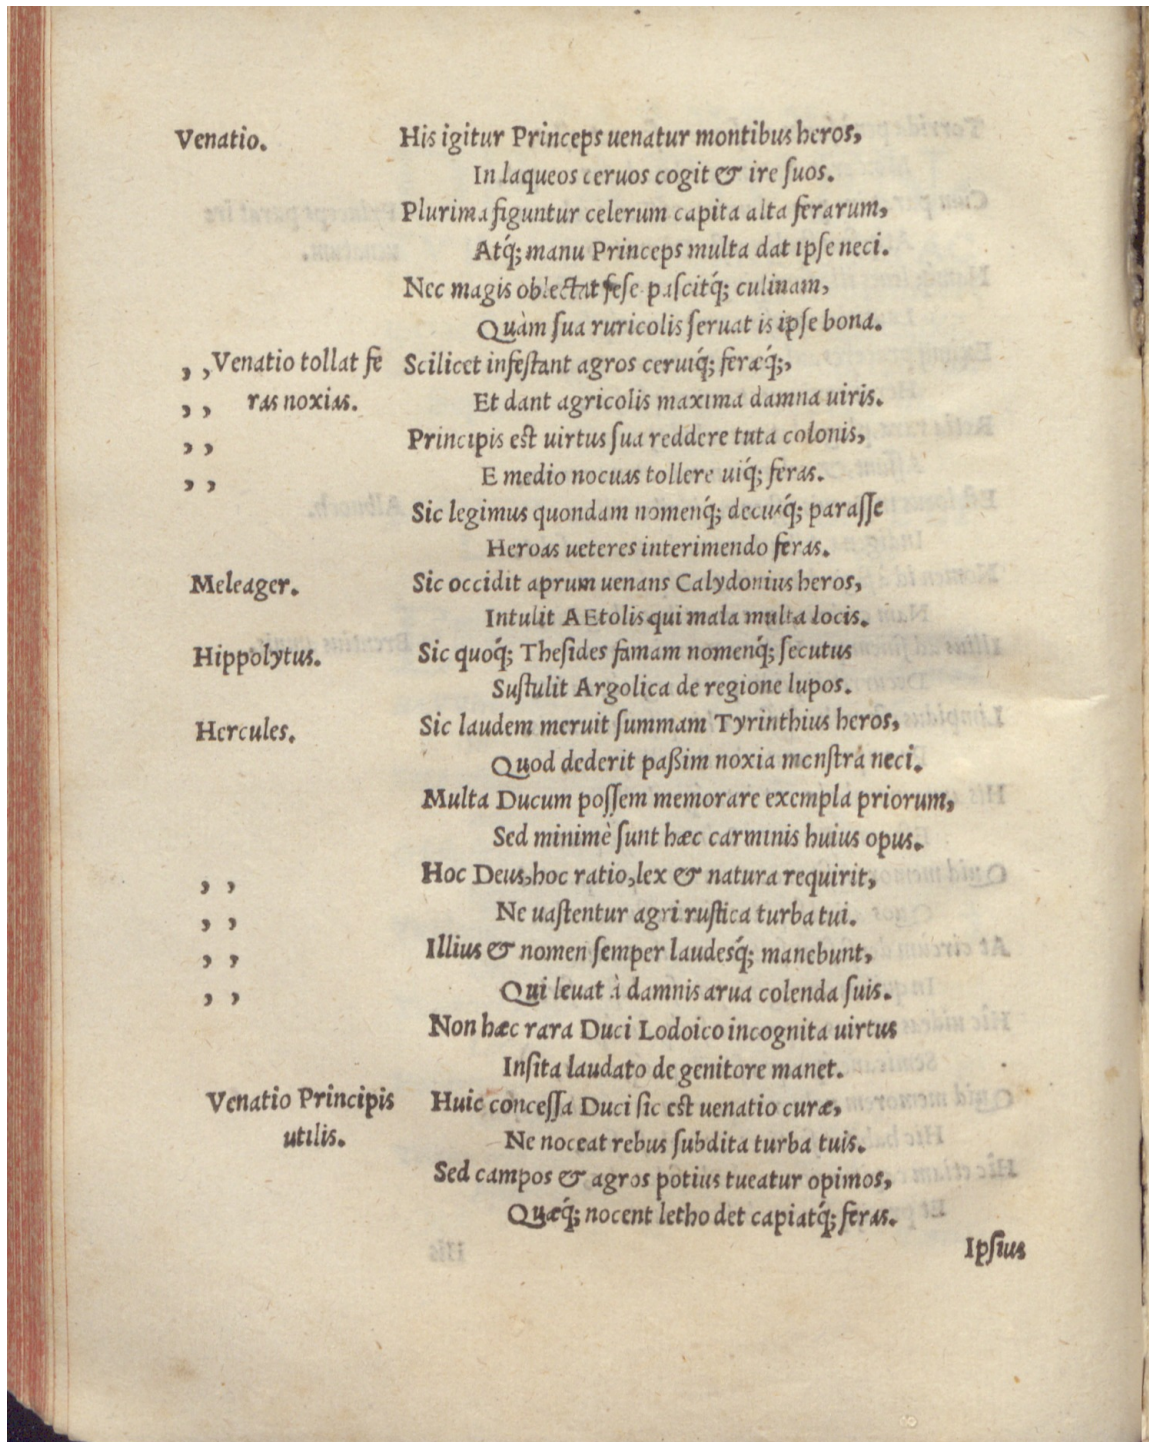 Venatio. His igitur Princeps uenatur montibus heros,
In laqueos ceruos cogit & ire ſuos.
Plurima figuntur celerum capita alta ferarum,
Atq́; manu Princeps multa dat ipſe neci.
Nec magis oblectat feſe paſcitq́; culinam,
Quàm ſua ruricolis ſeruat is ipſe bona.
,, Venatio tollat fe Scilicet infeſtant agros ceruiq́; feræq́;,
,, ras noxias. Et dant agricolis maxima damna uiris.
,, Principis eſt uirtus ſua reddere tuta colonis,
,, E medio nocuas tollere uiq́; feras.
Sic legimus quondam nomenq́; decusq́; paraſſe
Heroas ueteres interimendo feras.
Meleager. Sic occidit aprum uenans Calydonius heros,
Intulit AEtolis qui mala multa locis.
Hippolytus. Sic quoq́; Theſides famam nomenq́; ſecutus
Suſtulit Argolica de regione lupos.
Hercules. Sic laudem meruit ſummam Tyrinthius heros,
Quod dederit paßim noxia monſtra neci.
Multa Ducum poſſem memorare exempla priorum,
Sed minimè ſunt hæc carminis huius opus.
,, Hoc Deus, hoc ratio, lex & natura requirit,
,, Ne uaſtentur agri ruſtica turba tui.
,, Illius & nomen ſemper laudesq́; manebunt,
,, Qui leuat à damnis arua colenda ſuis.
Non hæc rara Duci Lodoico incognita uirtus
Inſita laudato de genitore manet.
Venatio Principis Huic conceſſa Duci ſic eſt uenatio curæ,
utilis. Ne noceat rebus ſubdita turba tuis.
Sed campos & agros potius tueatur opimos,
Quæq́; nocent letho det capiatq́; feras.
Ipſius